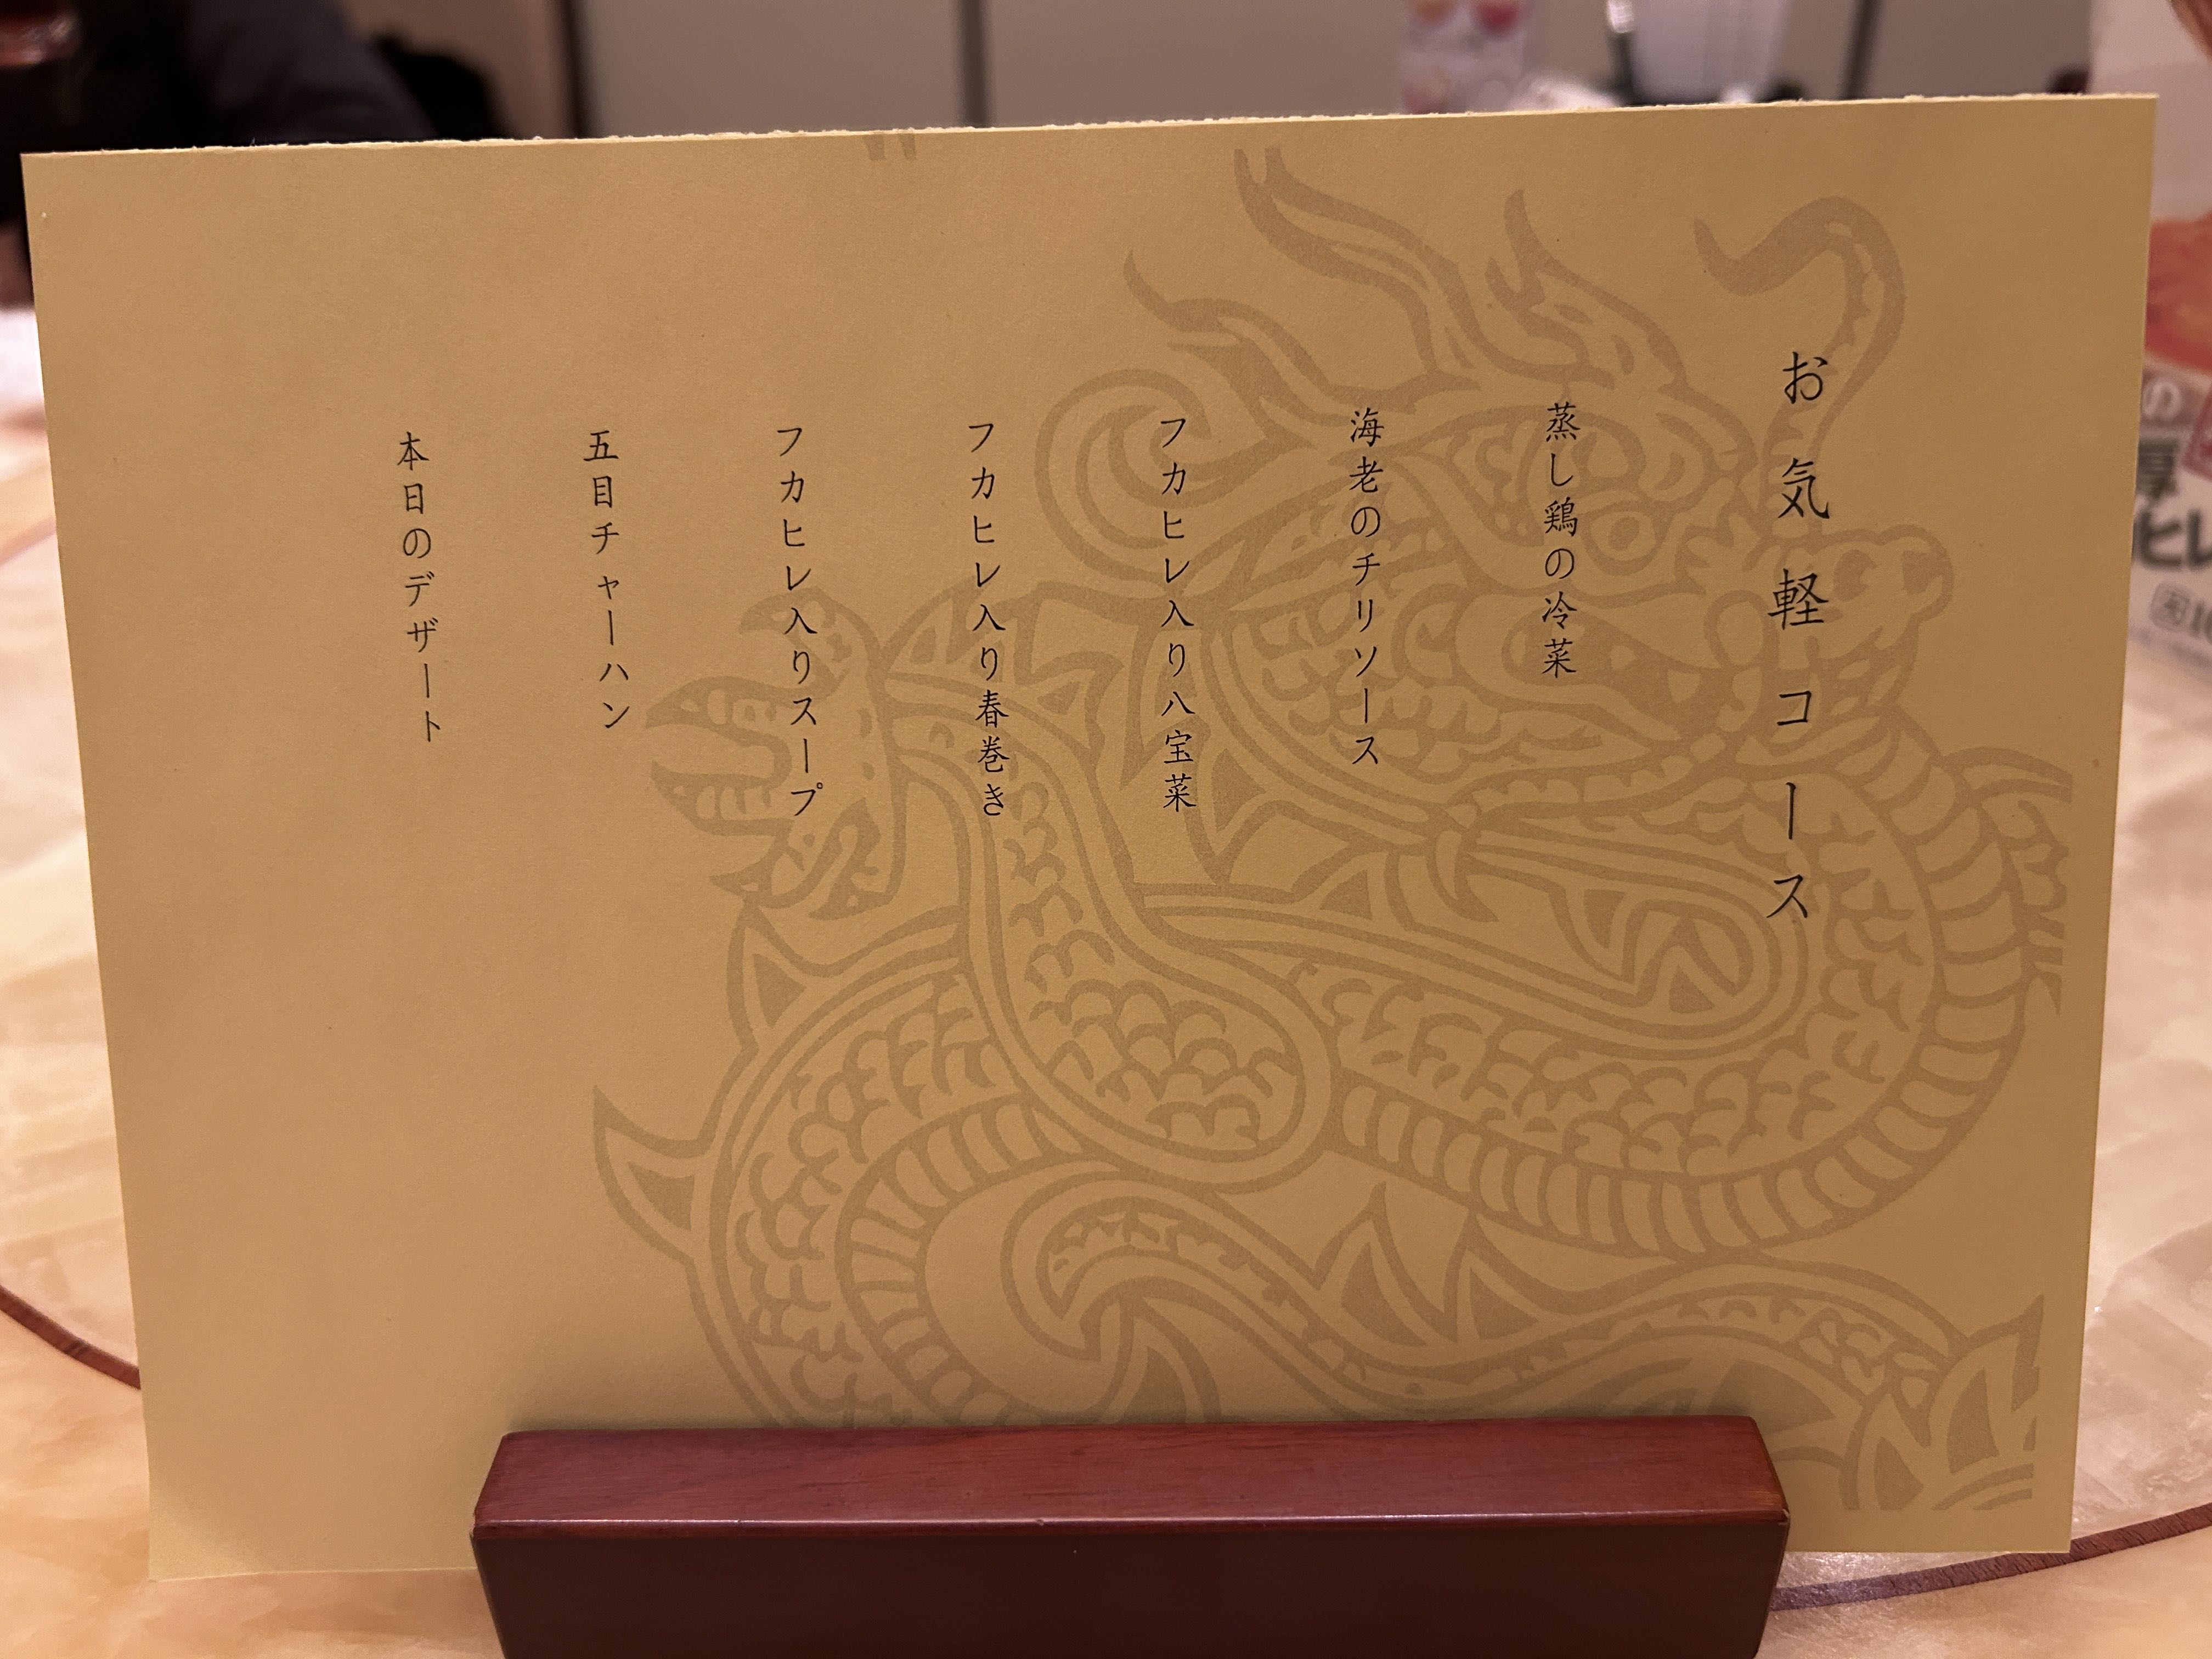 お気軽コース
蒸し鶏の冷菜
海老のチリソース
フカヒレ入り八宝菜
フカヒレ入り春巻き
フカヒレ入りスープ
五目チャーハン
本日のデザート
の
厚
ヒレ